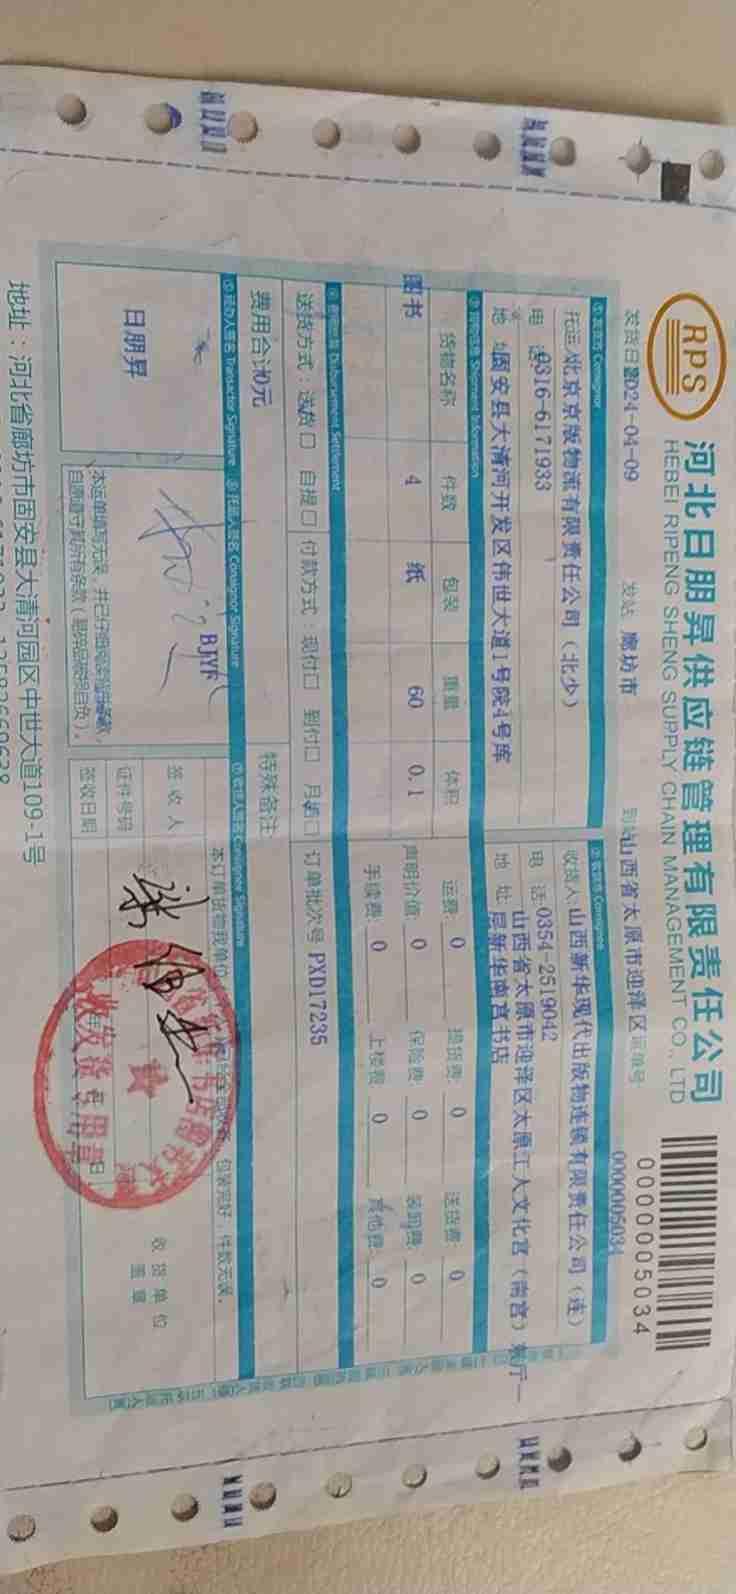 RPS
河北日朋昇供应链管理有限责任公司
HEBEI RIPENG SHENG SUPPLY CHAIN MANAGEMENT CO., LTD
0000005034
发货日期2024-04-09 发站 廊坊市 到站山西省太原市迎泽区 运单号:
0000005034
① 发货方 Consignor ② 收货方 Consignee
托运人:北京京版物流有限责任公司(北少) 收货人:山西新华现代出版物连锁有限责任公司(连)
电 话:0316-6171933 电 话:0354-2519042
地 址:固安县大清河开发区伟世大道1号院4号库 地 址:山西省太原市迎泽区太原工人文化宫(南宫)展厅一
层新华南宫书店
货物名称 件数 包装 重量 体积 运费: 0 提货费: 0 送货费: 0
图书 4 纸 60 0.1 声明价值: 0 保险费: 0 装卸费: 0
手续费: 0 上楼费: 0 其他费: 0
Disbursement Settlement
送货方式:送货□ 自提□ 付款方式:现付□ 到付□ 月结□ 订单批次号 PXD17235
费用合计:0元 特殊备注:
⑤ 经办人签名 Transactor Signature ⑥ 托运人签名 Consignor Signature ⑦ 收货人签名 Consignee Signature
日朋昇
BJYF
本订单货物我单位 包装完好,件数无误。
签收人
证件号码
签收日期
收货单位
盖章
收发货专用章
地址:河北省廊坊市固安县大清河园区中世大道109-1号